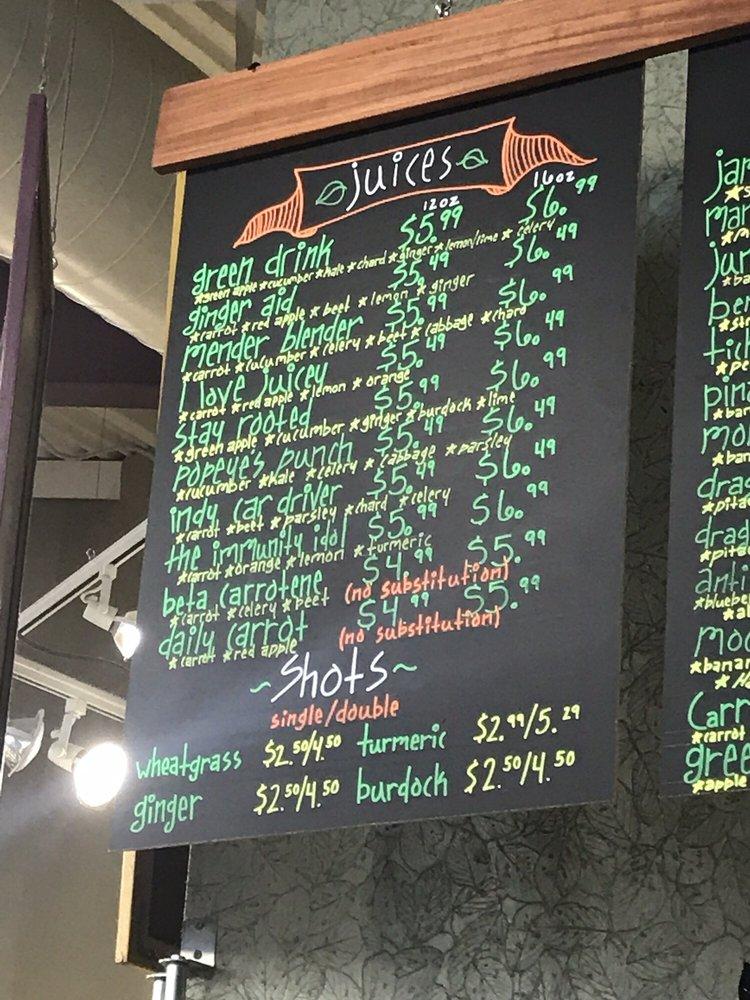 juices
12oz 16oz
green drink $5.99 $6.99
*green apple *cucumber *kale *chard *ginger *lemon/lime *celery
ginger aid $5.49 $6.49
*carrot *red apple *beet *lemon *ginger
mender blender $5.99 $6.99
*carrot *cucumber *celery *beet *cabbage *chard
I love Juicey $5.49 $6.49
*carrot *red apple *lemon *orange
stay rooted $5.99 $6.99
*green apple *cucumber *ginger *burdock *lime
popeye's punch $5.49 $6.49
*cucumber *kale *celery *cabbage *parsley
indy car driver $5.49 $6.49
*carrot *beet *parsley *chard *celery
the immunity idol $5.99 $6.99
*carrot *orange *lemon *turmeric
beta carrotene $4.99 $5.99
*carrot *celery *beet (no substitution)
daily carrot $4.99 $5.99
*carrot *red apple (no substitution)
~Shots~
single/double
wheatgrass $2.50/4.50 turmeric $2.99/5.29
ginger $2.50/4.50 burdock $2.50/4.50